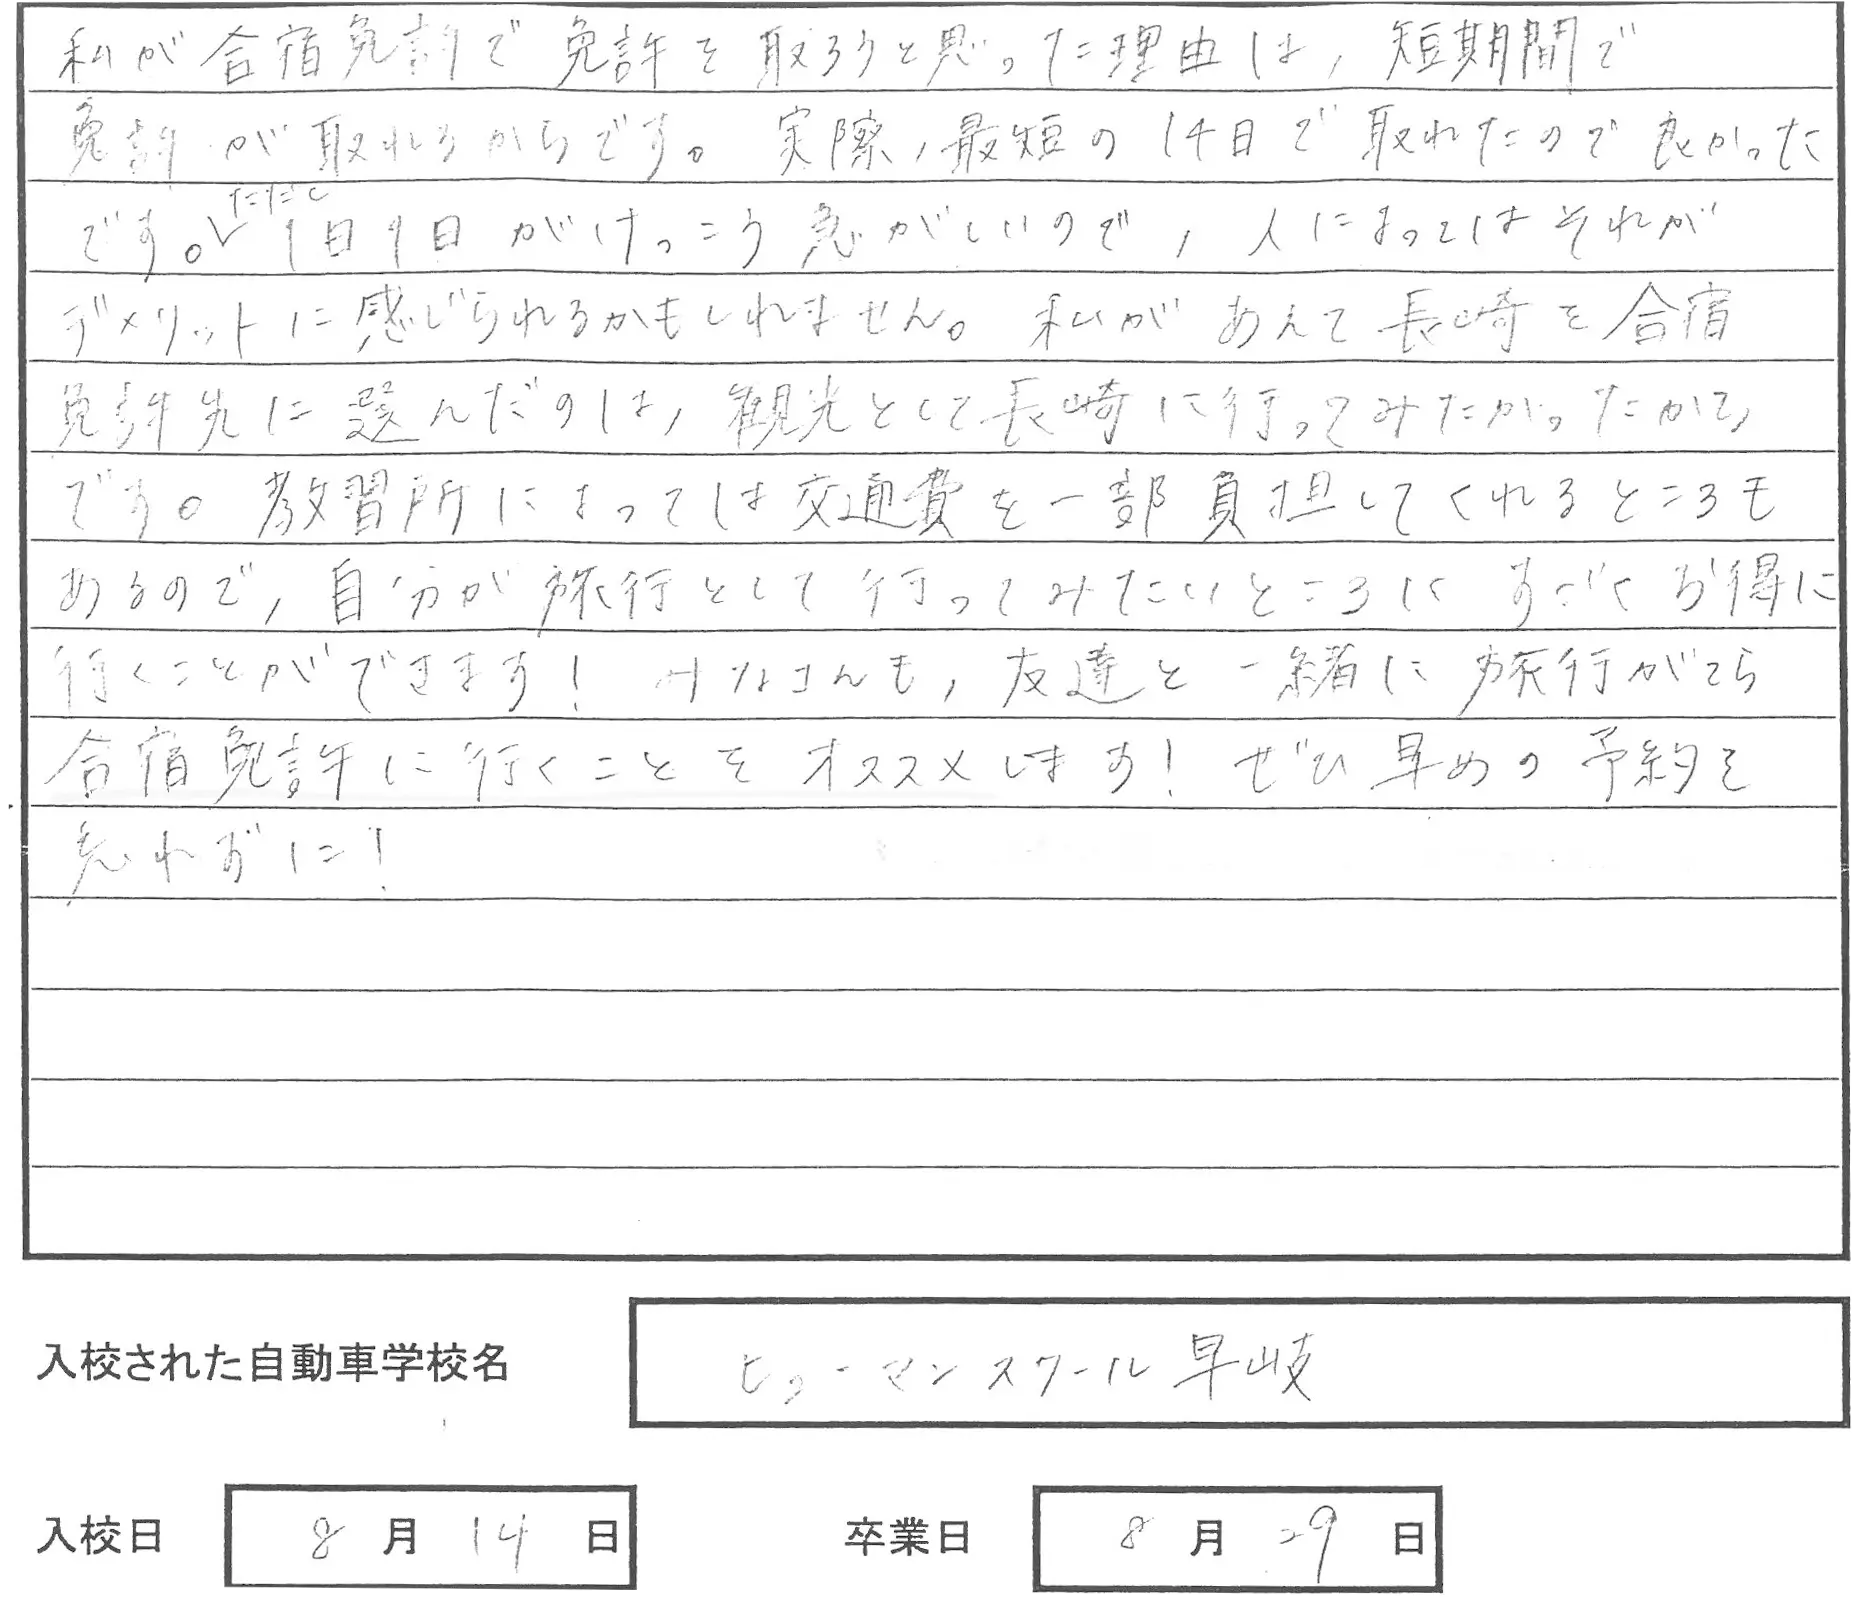 私が合宿免許で免許を取ろうと思った理由は,短期間で
免許が取れるからです。実際,最短の14日で取れたので良かった
です。ただし1日1日がけっこう急がしいので,人によってはそれが
デメリットに感じられるかもしれません。私があえて長崎を合宿
免許先に選んだのは,観光として長崎に行ってみたかったから
です。教習所によっては交通費を一部負担してくれるところも
あるので,自分が旅行として行ってみたいところにすごくお得に
行くことができます!みなさんも,友達と一緒に旅行がてら
合宿免許に行くことをオススメします!ぜひ早めの予約を
忘れずに!
入校された自動車学校名 ヒューマンスクール早岐
入校日 8月14日 卒業日 8月29日